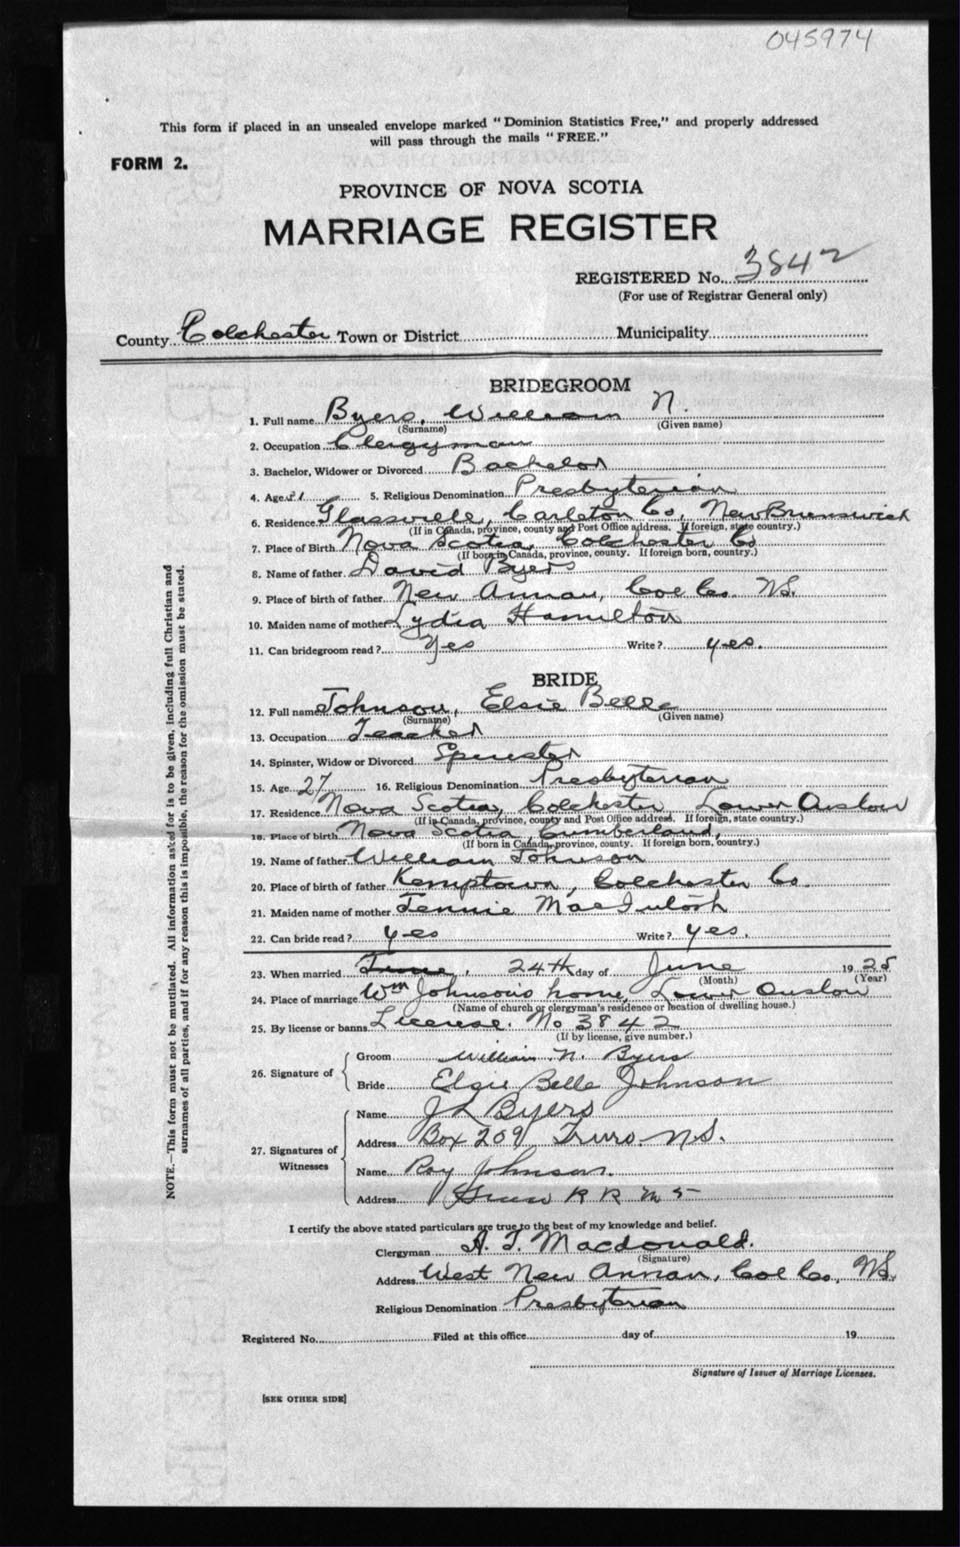 045974
This form if placed in an unsealed envelope marked "Dominion Statistics Free," and properly addressed
will pass through the mails "FREE."
FORM 2.
PROVINCE OF NOVA SCOTIA
MARRIAGE REGISTER
REGISTERED No. 3842
(For use of Registrar General only)
County Colchester Town or District Municipality
BRIDEGROOM
1. Full name Byers, William N.
(Surname) (Given name)
2. Occupation Clergyman
3. Bachelor, Widower or Divorced Bachelor
4. Age 5. Religious Denomination Presbyterian
6. Residence Glassville, Carleton Co, New Brunswick
(If in Canada, province, county and Post Office address. If foreign, state country.)
7. Place of Birth Nova Scotia, Colchester Co
(If born in Canada, province, county. If foreign born, country.)
8. Name of father David Byers
9. Place of birth of father New Annan, Col Co. NS.
10. Maiden name of mother Lydia Hamilton
11. Can bridegroom read? Yes Write? yes.
BRIDE
12. Full name Johnson, Elsie Belle
(Surname) (Given name)
13. Occupation Teacher
14. Spinster, Widow or Divorced Spinster
15. Age 27 16. Religious Denomination Presbyterian
17. Residence Nova Scotia, Colchester Lower Onslow
(If in Canada, province, county and Post Office address. If foreign, state country.)
18. Place of birth Nova Scotia, Cumberland,
(If born in Canada, province, county. If foreign born, country.)
19. Name of father William Johnson
20. Place of birth of father Kemptown, Colchester Co.
21. Maiden name of mother Jennie MacIntosh
22. Can bride read? yes Write? yes.
23. When married June, 24th day of June 1925
(Month) (Year)
24. Place of marriage Wm Johnson's home, Lower Onslow
(Name of church or clergyman's residence or location of dwelling house.)
25. By license or banns License. No 3842
(If by license, give number.)
26. Signature of
Groom William N. Byers
Bride Elsie Belle Johnson
27. Signatures of Witnesses
Name J L Byers
Address Box 209 Truro. N.S.
Name Roy Johnson.
Address Truro R R No 5
I certify the above stated particulars are true to the best of my knowledge and belief.
Clergyman A. J. Macdonald.
(Signature)
Address West New Annan, Col Co, NS.
Religious Denomination Presbyterian
Registered No. Filed at this office day of 19
Signature of Issuer of Marriage Licenses.
[SEE OTHER SIDE]
NOTE.—This form must not be mutilated. All information asked for is to be given, including full Christian and
surnames of all parties, and if for any reason this is impossible, the reason for the omission must be stated.